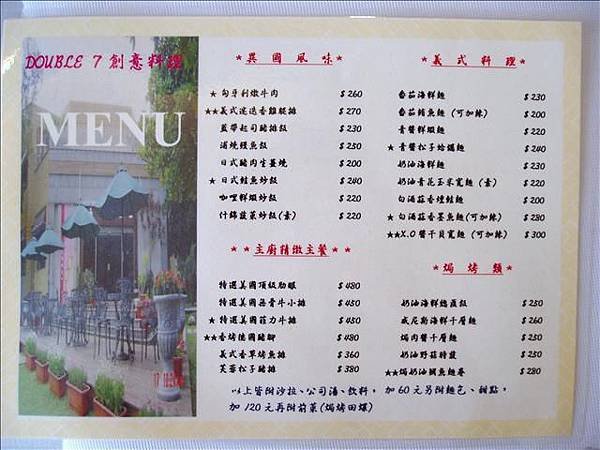 DOUBLE 7 創意料理
MENU
*異國風味*
★匈牙利燉牛肉 $260
★★義式迷迭香雞腿排 $270
藍帶起司豬排飯 $230
蒲燒鰻魚飯 $250
日式豬肉生薑燒 $200
★日式鮭魚炒飯 $240
咖哩鮮蝦炒飯 $220
什錦蔬菜炒飯(素) $220
**主廚精緻主餐*
特選美國頂級肋眼 $480
特選美國無骨牛小排 $450
★特選美國菲力牛排 $450
★★香烤德國豬腳 $450
義式香草烤魚排 $360
芙蓉松子豬排 $380
*義式料理*
番茄海鮮麵 $230
番茄鮪魚麵(可加辣) $220
青醬鮮蝦麵 $220
★青醬松子蛤蠣麵 $240
奶油海鮮麵 $230
奶油青花玉米寬麵(素) $220
白酒蒜香燻鮭麵 $200
★白酒蒜香墨魚麵(可加辣) $280
★★X.O醬干貝寬麵(可加辣) $300
*焗烤類*
奶油海鮮總匯飯 $250
威尼斯海鮮千層麵 $250
焗肉醬千層麵 $230
奶油野菇時蔬 $250
★★焗奶油鯛魚麵卷 $280
以上皆附沙拉、公司湯、飲料, 加60元另附麵包、甜點,
加120元再附前菜(焗烤田螺)